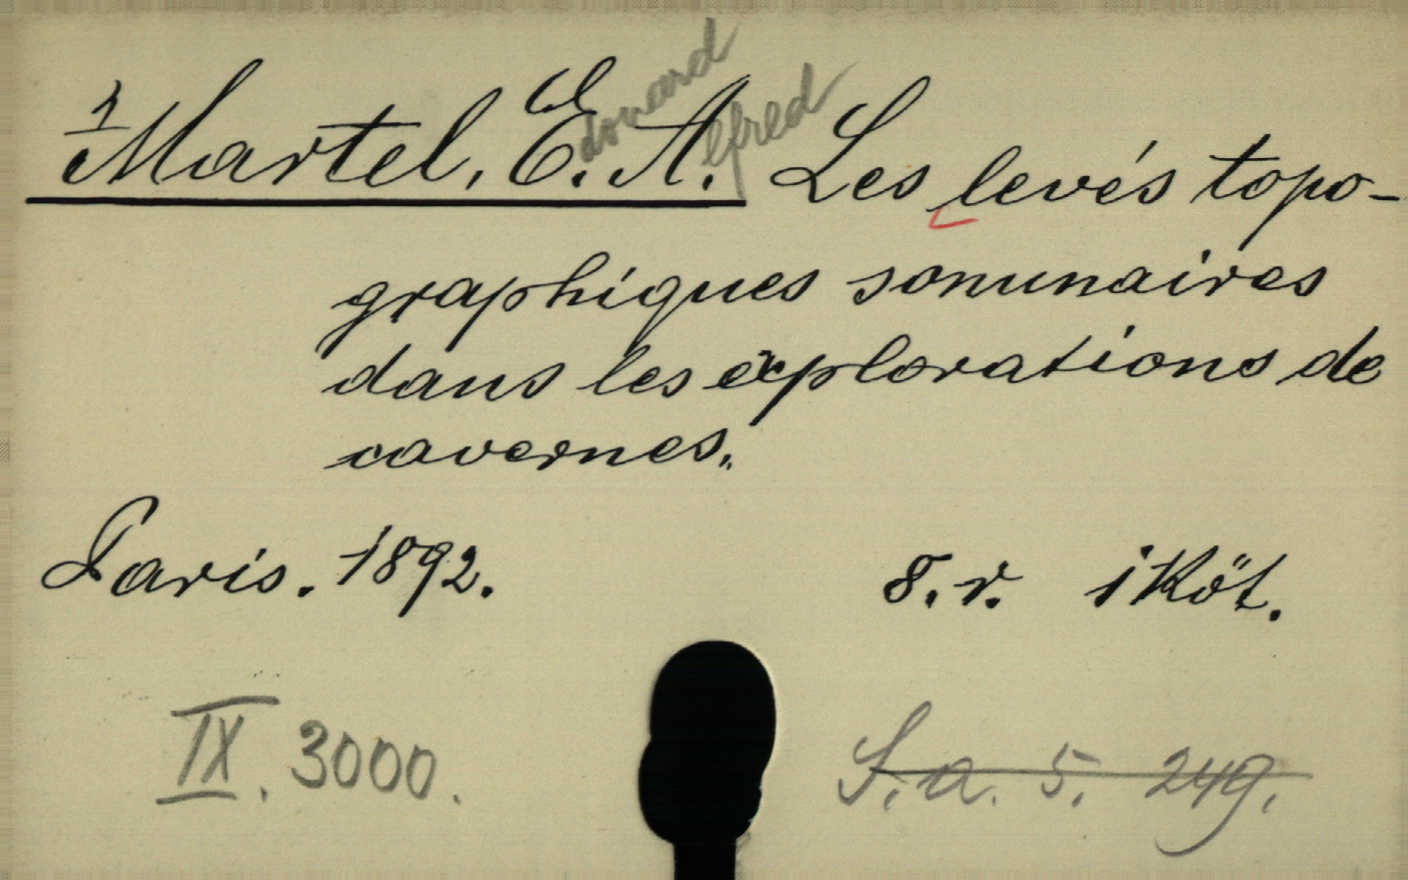 1 Martel, E.douard A.lfred Les levés topo-
graphiques sommaires
dans les explorations de
cavernes.
Paris. 1892. 8.r. 1 Köt.
IX. 3000. S.a. 5. 249.